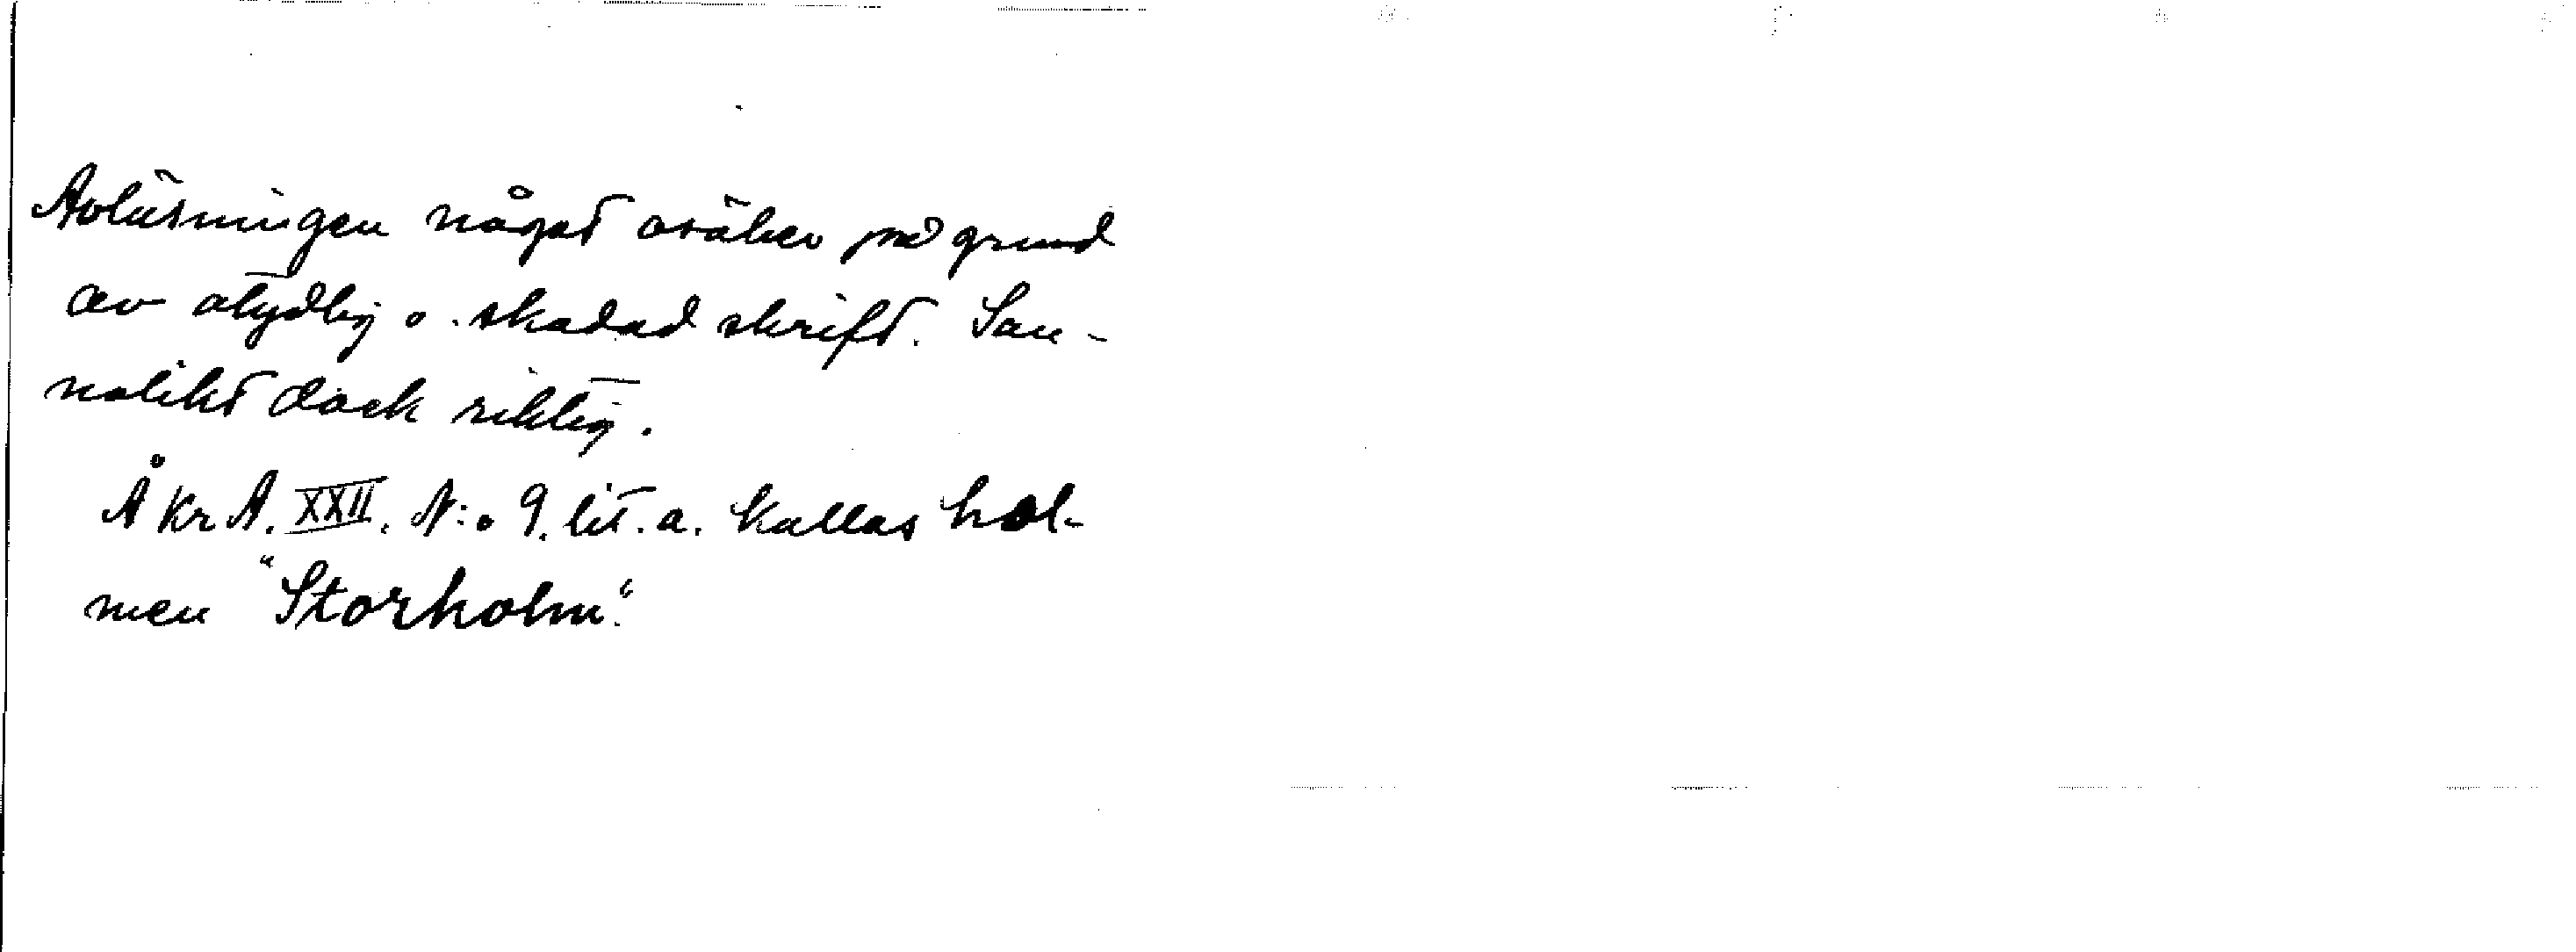 Avläsningen något osäker på grund
av otydlig o. skadad skrift. San-
nolikt dock riktig.
Å Kr A. XXII. N:o 9. lit. a. kallas hol-
men "Storholm".